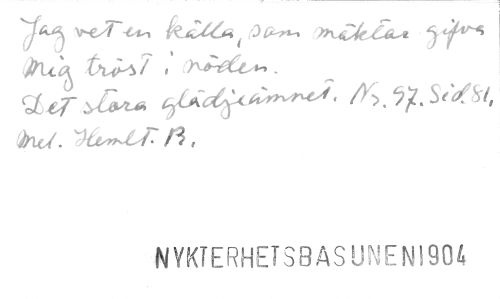 Jag vet en källa, som mäktar gifva
mig tröst i nöden.
Det stora glädjeämnet. Nr. 97. Sid. 81.
Mel. Hemlt. B.
NYKTERHETSBASUNEN 1904